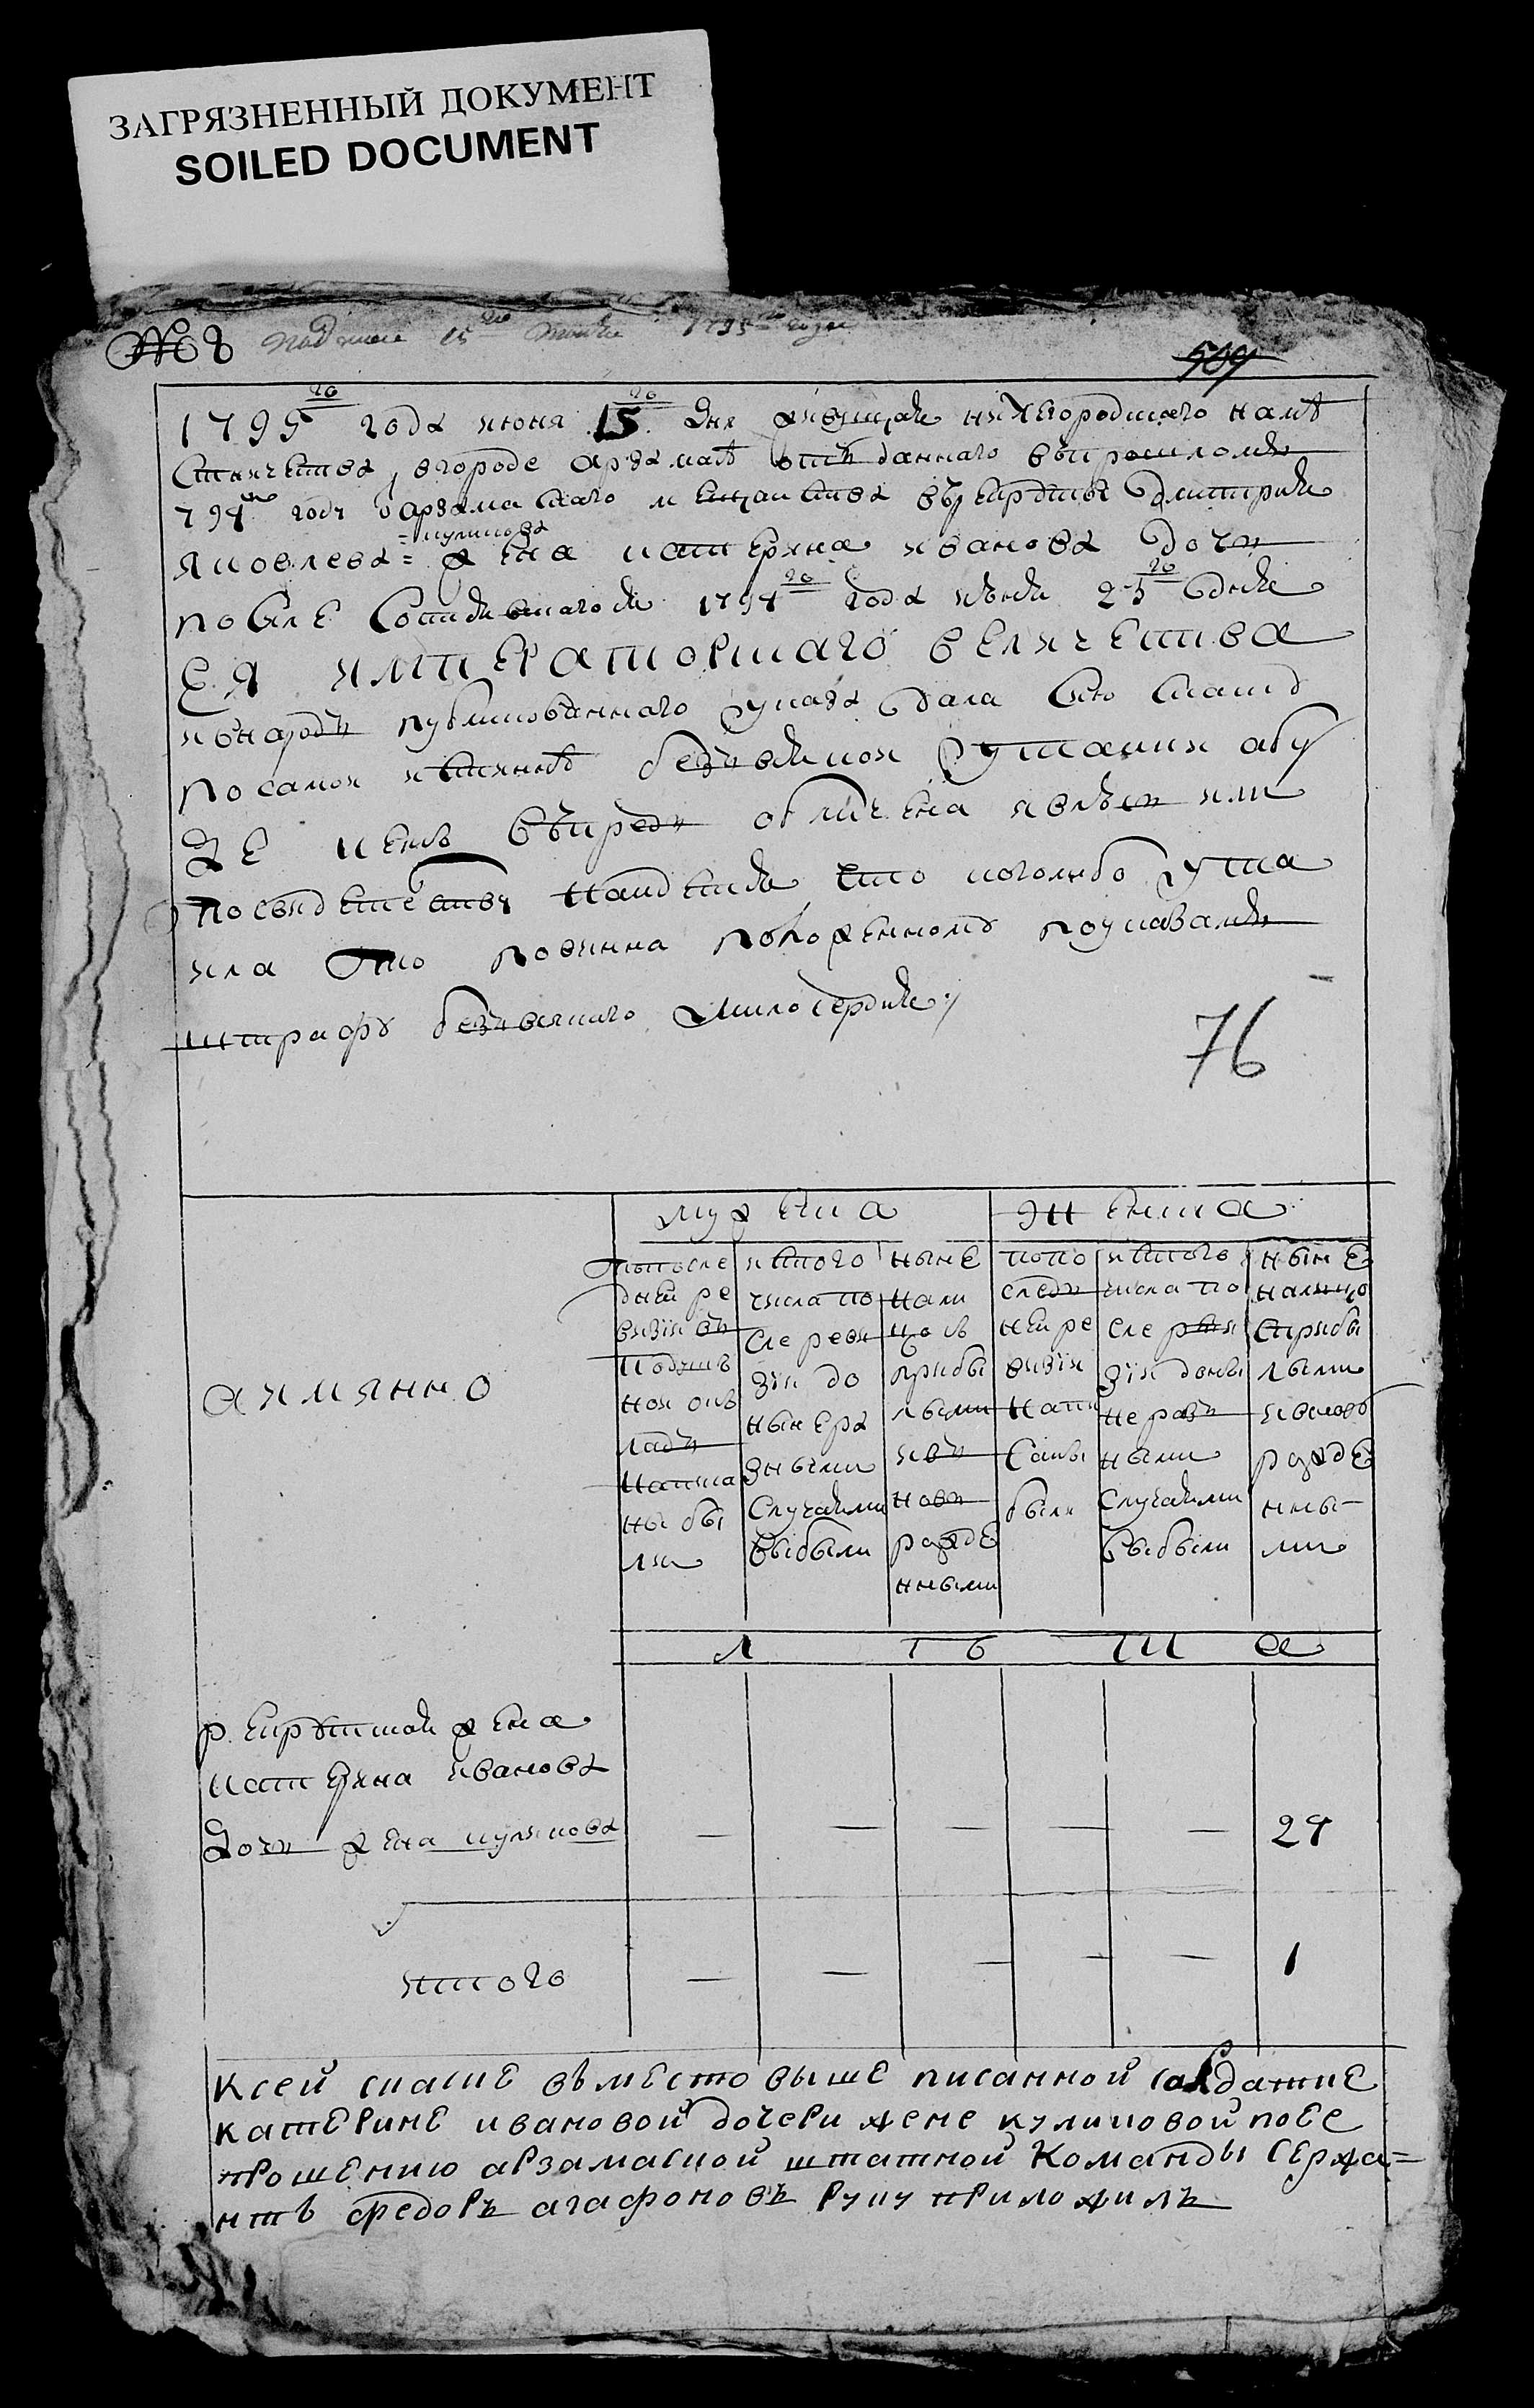 ЗАГРЯЗНЕННЫЙ ДОКУМЕНТ
SOILED DOCUMENT
№ 8 подана 15го июня 1795го года
509
1795го года июня 15го дня живущая нижегородскаго намѣ
стничества, вгороде арзамасѣ отъданнаго впрошломъ
794мъ году изарзамаскаго мещанства врекруты дмитрия
яковлева = куликова = жена катерина иванова дочь
посиле состоявшагося 1794го года июня 23го дня
ЕЯ ИМПЕРАТОРСКАГО ВЕЛИЧЕСТВА
ивнародъ публикованнаго указа дала сию сказку
посамой истиннѣ безъвсякой утайки абу
де кемъ впредь обличена явлюсь или
посвидетельству найдется что коголибо ута
ила то повинна положенному поуказамъ
штрафу безъвсякаго милосердия
76
мужеска
женска
аимянно
попосле
дней ре
визии въ
подушъ
ной окъ
ладъ
написа
ны бы
ли
истого
числа по
сле реви
зии до
ныне ра
зными
случаями
выбыли
ныне
нали
цо съ
прибы
лыми
ивъ
новь
рожде
нными
попо
следъ
ней ре
визии
напи
саны
были
истого
числа по
сле реви
зии доны
не разъ
ными
случаями
выбыли
ныне
налицо
сприбы
лыми
ивновь
рожде
нны-
ми
л ѣ т а
рекрутская жена
катерина иванова
дочь жена куликова — — — — — 24
итого — — — — — 1
ксей скаске вместо выше писанной салдатке
катерине ивановой дочери жене куликовой поее
прошению арзамаской штатной команды сержа=
нтъ федоръ агафоновъ руку приложилъ